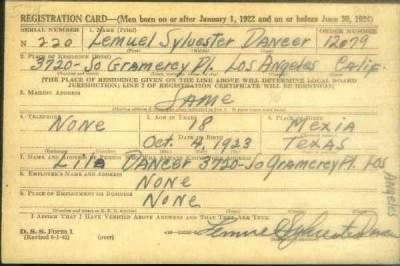 REGISTRATION CARD—(Men born on or after January 1, 1922 and on or before June 30, 1924)
SERIAL NUMBER 1. NAME (Print) ORDER NUMBER
N 220 Lemuel Sylvester Dancer 12079
(First) (Middle) (Last)
2. PLACE OF RESIDENCE (Print)
3720-So Gramercy Pl. Los Angeles Calif.
[THE PLACE OF RESIDENCE GIVEN ON THE LINE ABOVE WILL DETERMINE LOCAL BOARD
JURISDICTION; LINE 2 OF REGISTRATION CERTIFICATE WILL BE IDENTICAL]
3. MAILING ADDRESS
SAME
4. TELEPHONE 5. AGE IN YEARS 6. PLACE OF BIRTH
NONE 18 Mexia
DATE OF BIRTH
Oct. 4, 1923 TEXAS
7. NAME AND ADDRESS OF
DANCER 3720-So Gramercy Pl. Los
Angeles
8. EMPLOYER'S NAME AND ADDRESS
NONE
9. PLACE OF EMPLOYMENT OR BUSINESS
NONE
I AFFIRM THAT I HAVE VERIFIED ABOVE ANSWERS AND THAT THEY ARE TRUE.
D. S. S. Form 1
(Revised 6-1-42) (over) Lemuel Sylvester Dancer